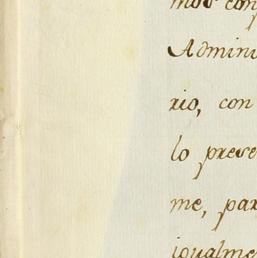 mos con
Admini
rio, con
lo prese
me, par
igualme